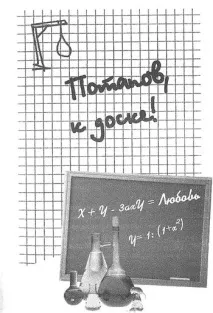 Потапов,
к доске!
X + Y - ЗахY = Любовь
Y = 1 : (1+x²)